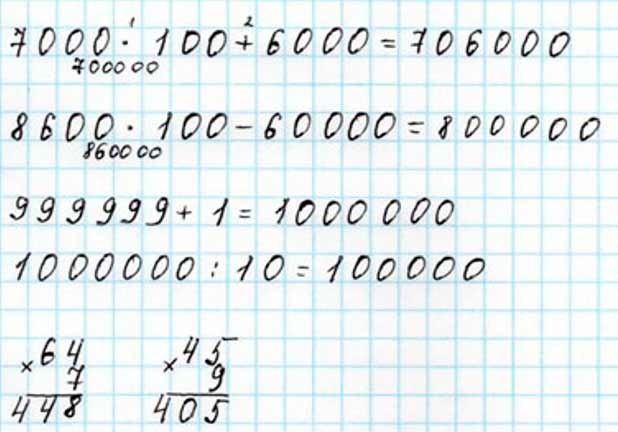 1 2
7000 · 100 + 6000 = 706000
700000
8600 · 100 - 60000 = 800000
860000
999999 + 1 = 1000000
1000000 : 10 = 100000
64 45
× 7 × 9
448 405